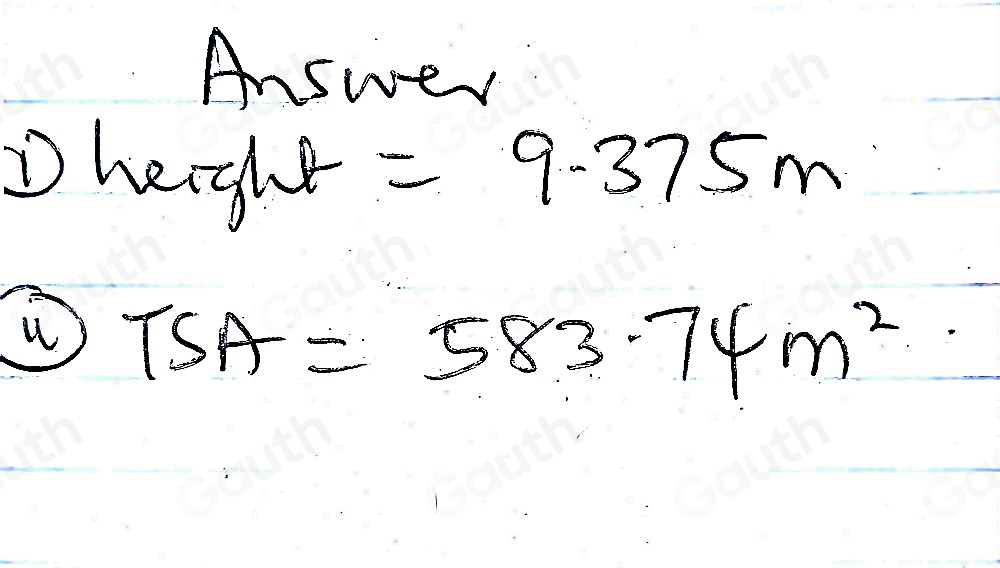 Answer
i) height = 9.375m
ii) TSA = 583.74m².